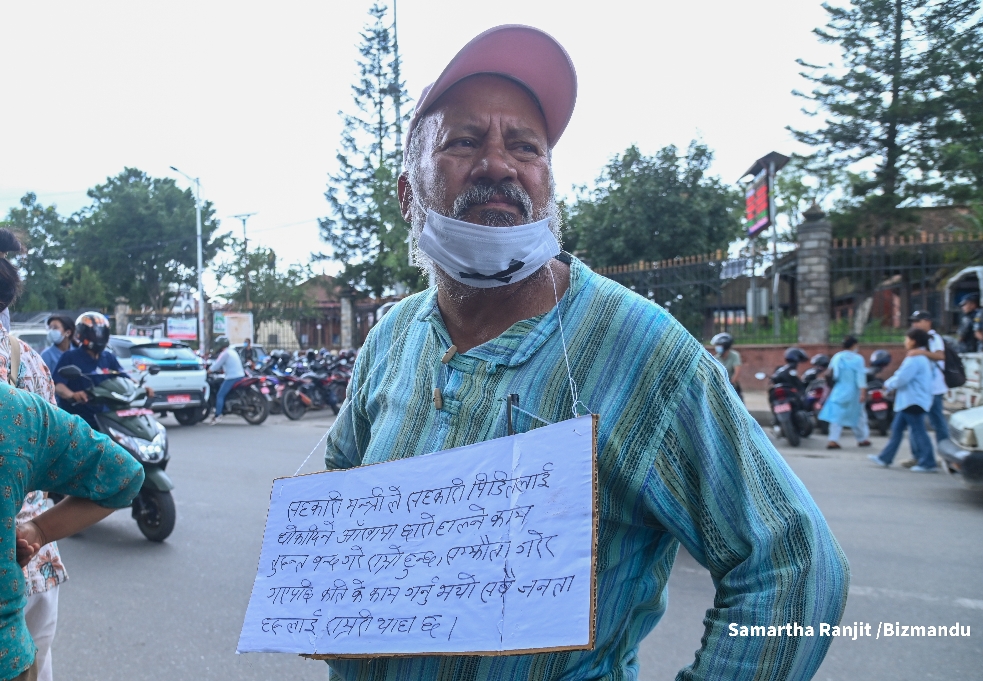 सहकारी मन्त्रीले सहकारी पिडितलाई
धोकादिने आँखामा छारो हाल्ने काम
तुरुन्त बन्द गरे राम्रो हुन्छ, सम्झौता गरेर
गएपछि कति के काम गर्नु भयो सबै जनता
हरूलाई राम्ररी थाहा छ।
Samartha Ranjit /Bizmandu